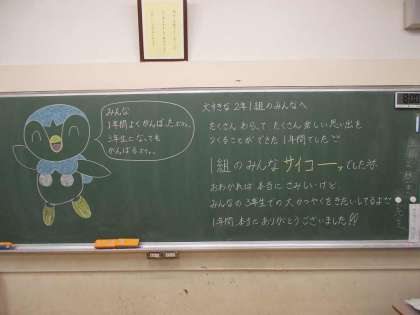 みんな
1年間よくがんばった
3年生になっても
がんばる
大すきな 2年1組のみんなへ
たくさん わらって たくさん 楽しい思い出を
つくることが できた 1年間でした
1組のみんな サイコーでした
おわかれは 本当に さみしいけど、
みんなの3年生での 大かつやくをきたいしてるよ
1年間、本当に ありがとうございました!!